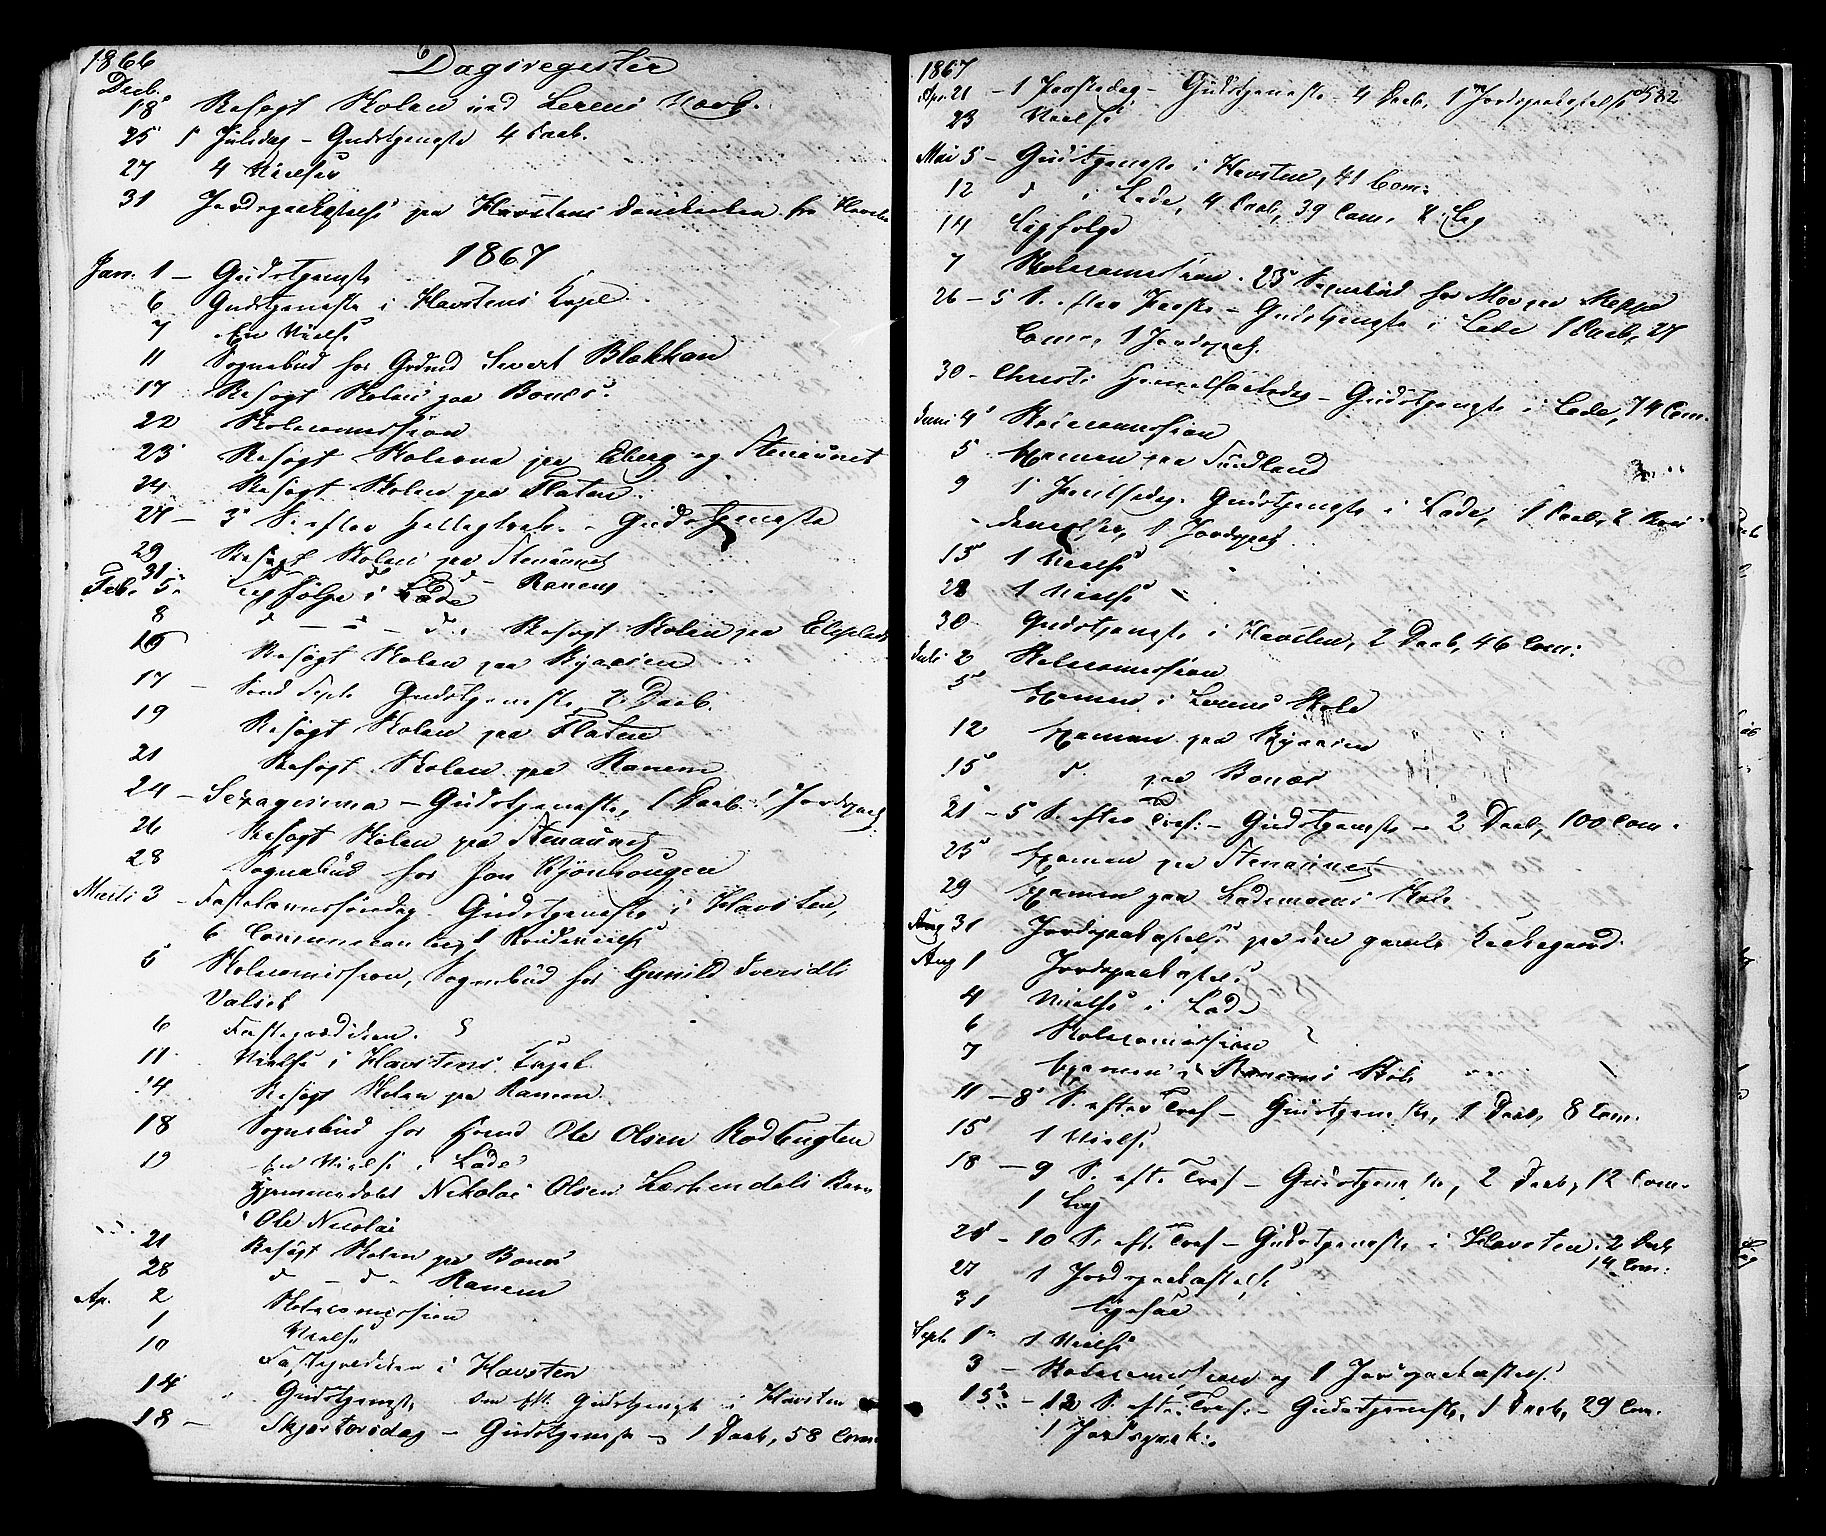 1866
Dagsregister
Decb.
18 Besøgt Skolen ved Lerens
25 1 Juledag - Gudstjeneste 4 Daab.
27 4 Vielser
31 Jordspaakastelse paa Havstens
1867
Jan. 1 - Gudstjeneste
6 Gudstjeneste i Havstens Capel
7 En Vielse
11 Sognebud for Sivert Blakkan
17 Besøgt Skolen paa Bonæs.
22 Skolecommission
23 Besøgt Skolerne paa Eberg og Stenaunet
24 Besøgt Skolen paa Flaten
27 - 3 S. efter Helligtrek. - Gudstjeneste
29 Besøgt Skolen paa Stenaunet
31 d d d Ranem
Feb. 5 Ligfølge i Lade
8 d - d - d. Besøgt Skolen paa
16 Besøgt Skolen paa
17 - Gudstjeneste 7 Daab.
19 Besøgt Skolen paa Flaten
21 Besøgt Skolen paa Ranem
24 - Sexagesima - Gudstjeneste, 1 Daab 1 Jordspaak
26 Besøgt Skolen paa Stenaunet
28 Sognebud for Jon
Marti 3 - Fastelavnssøndag. Gudstjeneste i Havsten,
6 Communicanter, 1
5 Skolecomission, Sognebud for Gunild
Valset
6 Fasteprædiken.
11 Vielse i Havstens Capel
14 Besøgt Skolen paa Ranem
18 Sognebud for Ole Olsen Rodbugten
19 En Vielse i Lade
Hjemmedøbt Nikolai Olsen Leskendals Barn
Ole Nicolai
21 Besøgt Skolen paa Bonæs
28 d - d - Ranem
Ap. 2 Skolecomission
1 Vielse
10 Fasteprediken i Havsten
14 Gudstjeneste, Gudstjeneste i Havsten
18 - Skjærtorsdag - Gudstjeneste - 1 Daab, 58 Com.
1867
582
Apr. 21 - 1 Paaskedag - Gudstjeneste 4 Daab, 1 Jordspaakastelse
23 Vielse
Mai 5 - Gudstjeneste i Havsten, 41 Com.
12 d i Lade, 4 Daab, 39 Com. 8 Lig
14 Ligfølge
7 Skolecomission. 23 Sognebud for
26 - 5 S. efter Paaske - Gudstjeneste i Lade 1 Daab, 27
Com., 1 Jordspaak.
30 - Christi Himmelfartsdag - Gudstjeneste i Lade, 74 Com.
Juni 4 Skolecomission
5 Examen paa Sundland
9 1 Pintsedag. Gudstjeneste i Lade, 1 Daab, 2
1 Jordspaak
15 1 Vielse
28 1 Vielse
30 Gudstjeneste i Havsten, 2 Daab, 46 Com:
Juli 2 Skolecomission
5 Examen i Lerens Skole
12 Examen paa
15 d. paa Bonæs
21 - 5 S. efter Tref. - Gudstjeneste - 2 Daab, 100 Com.
25 Examen paa Stenaunet
29 Examen paa Lademoens Skole
Aug 31 Jordspaakastelse paa den gamle Kirkegaard.
Aug 1 Jordspaakastelse
4 Vielse i Lade
6 Skolecomission
7 Examen i Ranems Skole
11 - 8 S. efter Tref - Gudstjeneste, 1 Daab, 8 Com.
15 1 Vielse
18 - 9 S. efter Tref - Gudstjeneste, 2 Daab, 12 Com.
1 Lig
25 - 10 S. eft. Tref - Gudstjeneste i Havsten, 2 Daab
14 Com.
27 1 Jordspaakastelse
31
Sept. 1 1 Vielse
3 - Skolecomission og 1 Jordspaakastelse
15 - 13 S. eft. Tref. - Gudstjeneste, 1 Daab, 29 Com.
1 Jordspaak.